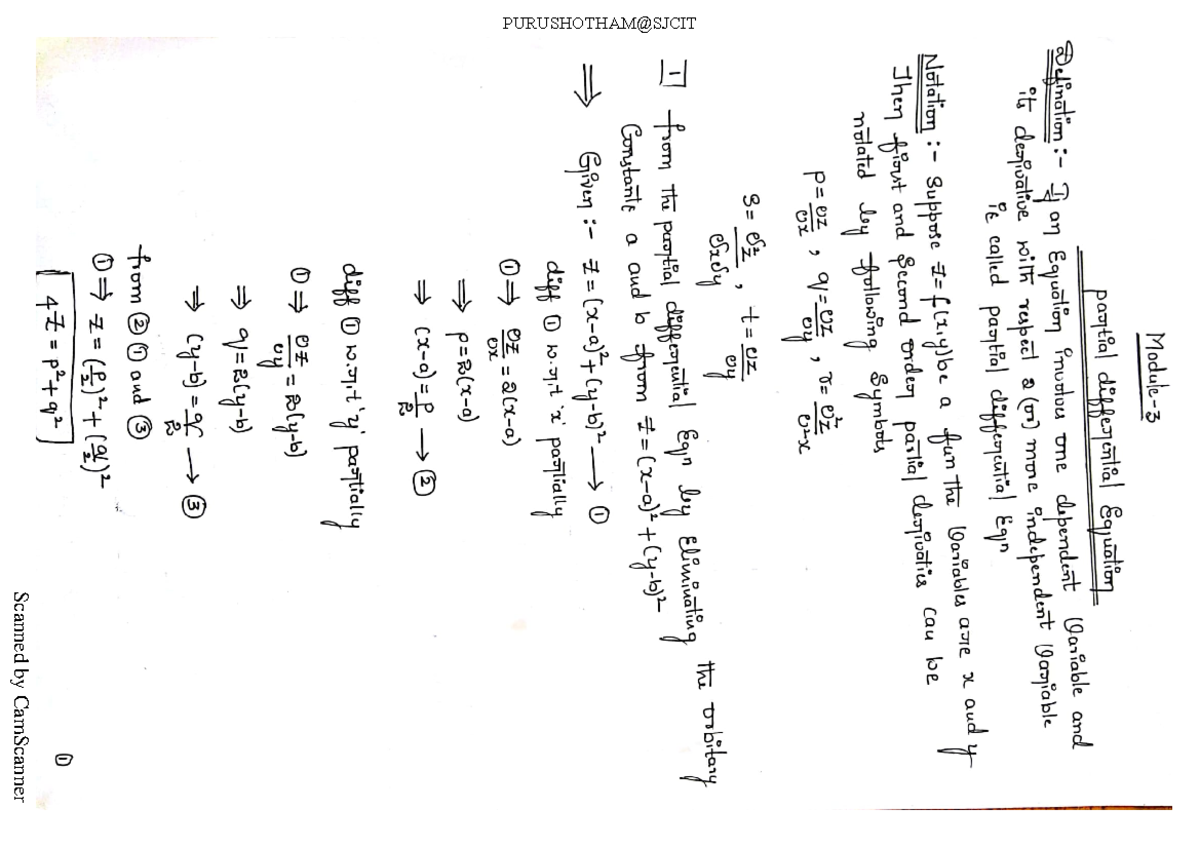 PURUSHOTHAM@SJCIT
Module-3
partial differential Equation
Defination :- If an Equation involves one dependent Variable and
its derivative with respect 2 (or) more independent Variable
is called partial differential Eqn
Notation :- Suppose z = f(x,y) be a fun the Variables are x and y
Then first and Second order partial derivatives can be
notated by following Symbols
p = ∂z/∂x , q = ∂z/∂y , r = ∂²z/∂²x
S = ∂²z/∂x∂y , t = ∂z/∂y
1 from the partial differential Eqn by Eliminating the orbitary
Constants a and b from z = (x-a)² + (y-b)²
⇒ Given :- z = (x-a)² + (y-b)² → ①
diff ① w.r.t 'x' partially
① ⇒ ∂z/∂x = 2(x-a)
⇒ p = 2(x-a)
⇒ (x-a) = p/2 → ②
diff ① w.r.t 'y' partially
① ⇒ ∂z/∂y = 2(y-b)
⇒ q = 2(y-b)
⇒ (y-b) = q/2 → ③
from ② ① and ③
① ⇒ z = (p/2)² + (q/2)²
4z = p² + q²
①
Scanned by CamScanner